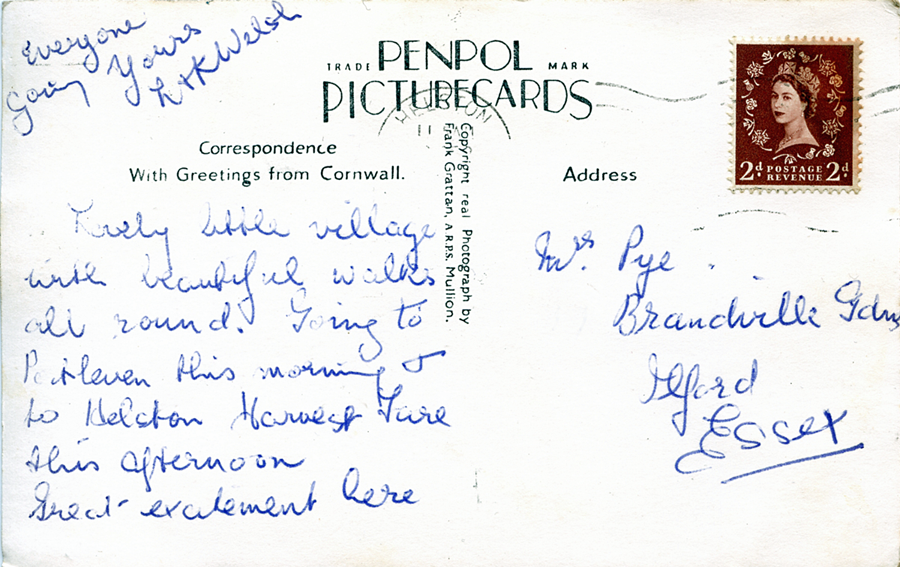 Everyone
Going Yours
L & K Welsh
TRADE PENPOL MARK
PICTURECARDS
HELSTON
Correspondence
With Greetings from Cornwall.
Address
Copyright real Photograph by
Frank Grattan, A.R.P.S. Mullion.
2d. POSTAGE REVENUE 2d.
Lovely little village
with beautiful walks
all round. Going to
Porthleven this morning &
to Helston Harvest Fare
this afternoon
Great excitement here
Mrs. Pye.
Brandville Gdns
Ilford
Essex